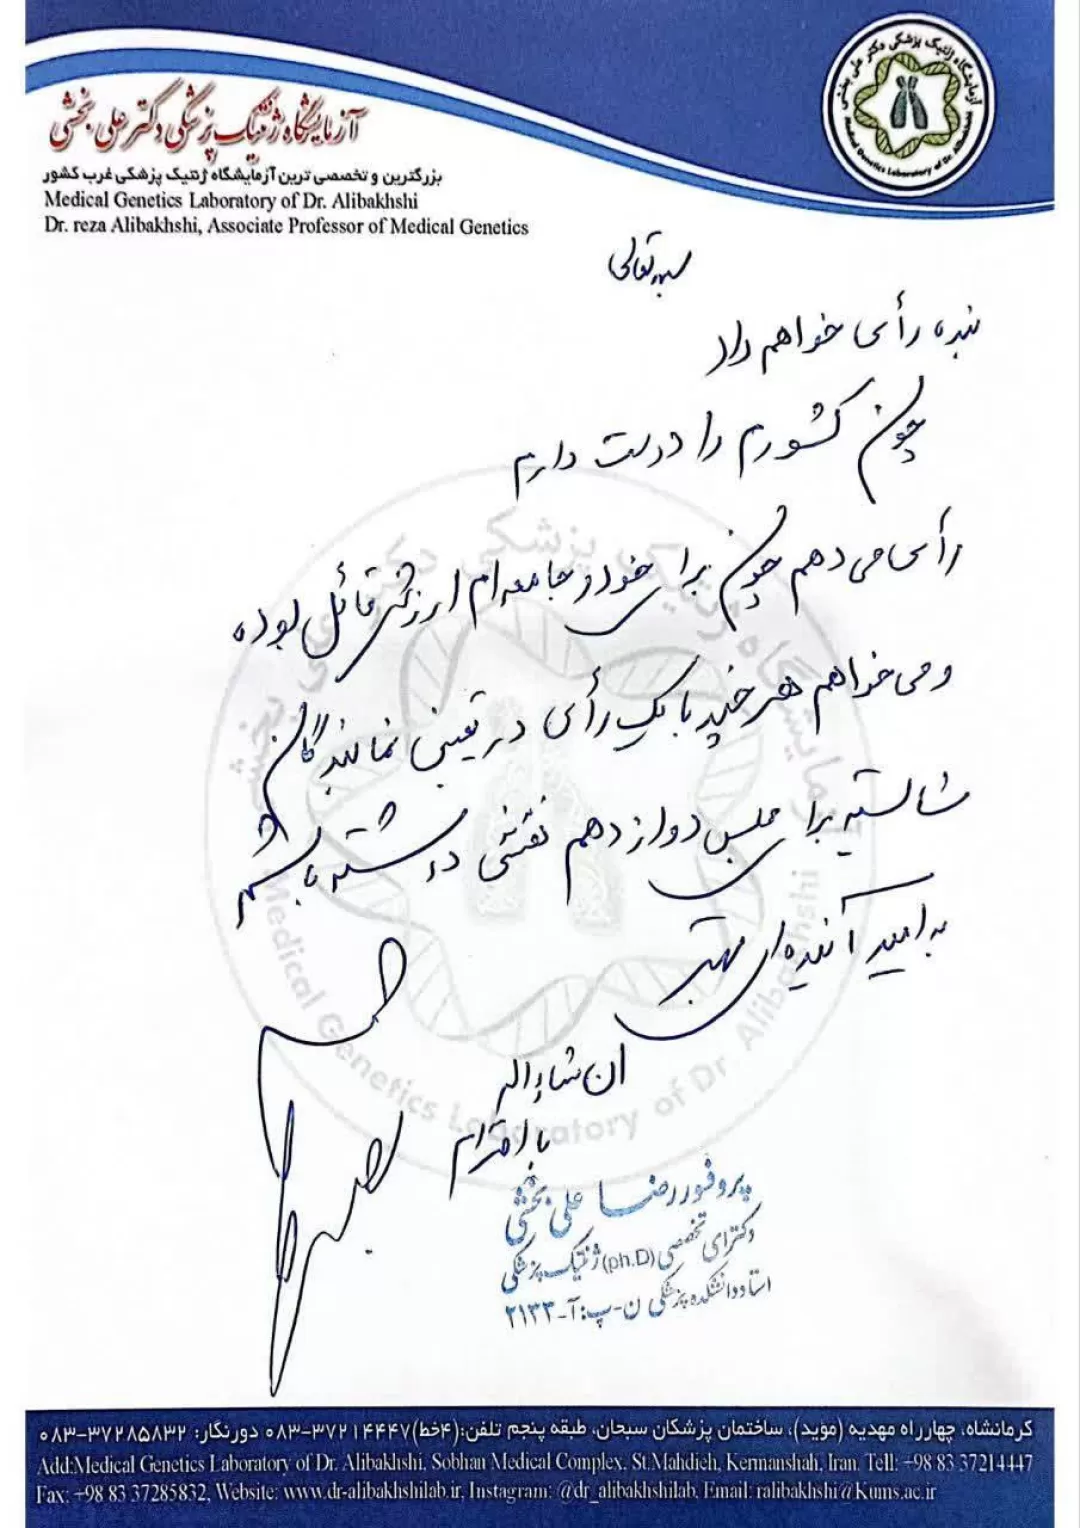 آزمایشگاه ژنتیک پزشکی دکتر علی بخشی
بزرگترین و تخصصی ترین آزمایشگاه ژنتیک پزشکی غرب کشور
Medical Genetics Laboratory of Dr. Alibakhshi
Dr. reza Alibakhshi, Associate Professor of Medical Genetics
آزمایشگاه ژنتیک پزشکی دکتر علی بخشی
Medical Genetics Laboratory of Dr. Alibakhshi
بسمه تعالی
بنده رأی خواهم داد
چون کشورم را دوست دارم
رأی می دهم چون برای خود و جامعه ام ارزش قائل بوده
و می خواهم هر چند با یک رأی در تعیین نمایندگان
شایسته برای مجلس دوازدهم نقشی داشته باشم
به امید آینده ای بهتر
ان شاءالله
با احترام
پروفسور رضا علی بخشی
دکترای تخصصی (ph.D) ژنتیک پزشکی
استاد دانشکده پزشکی ن-پ: آ-۲۱۳۳
آزمایشگاه ژنتیک پزشکی دکتر علی بخشی
Medical Genetics Laboratory of Dr. Alibakhshi
کرمانشاه، چهارراه مهدیه (موید)، ساختمان پزشکان سبحان، طبقه پنجم تلفن:(۴خط)۳۷۲۱۴۴۴۷-۰۸۳ دورنگار: ۳۷۲۸۵۸۳۲-۰۸۳
Add:Medical Genetics Laboratory of Dr. Alibakhshi, Sobhan Medical Complex, St.Mahdieh, Kermanshah, Iran. Tell: +98 83 37214447
Fax: +98 83 37285832, Website: www.dr-alibakhshilab.ir, Instagram: @dr_alibakhshilab, Email: ralibakhshi@Kums.ac.ir